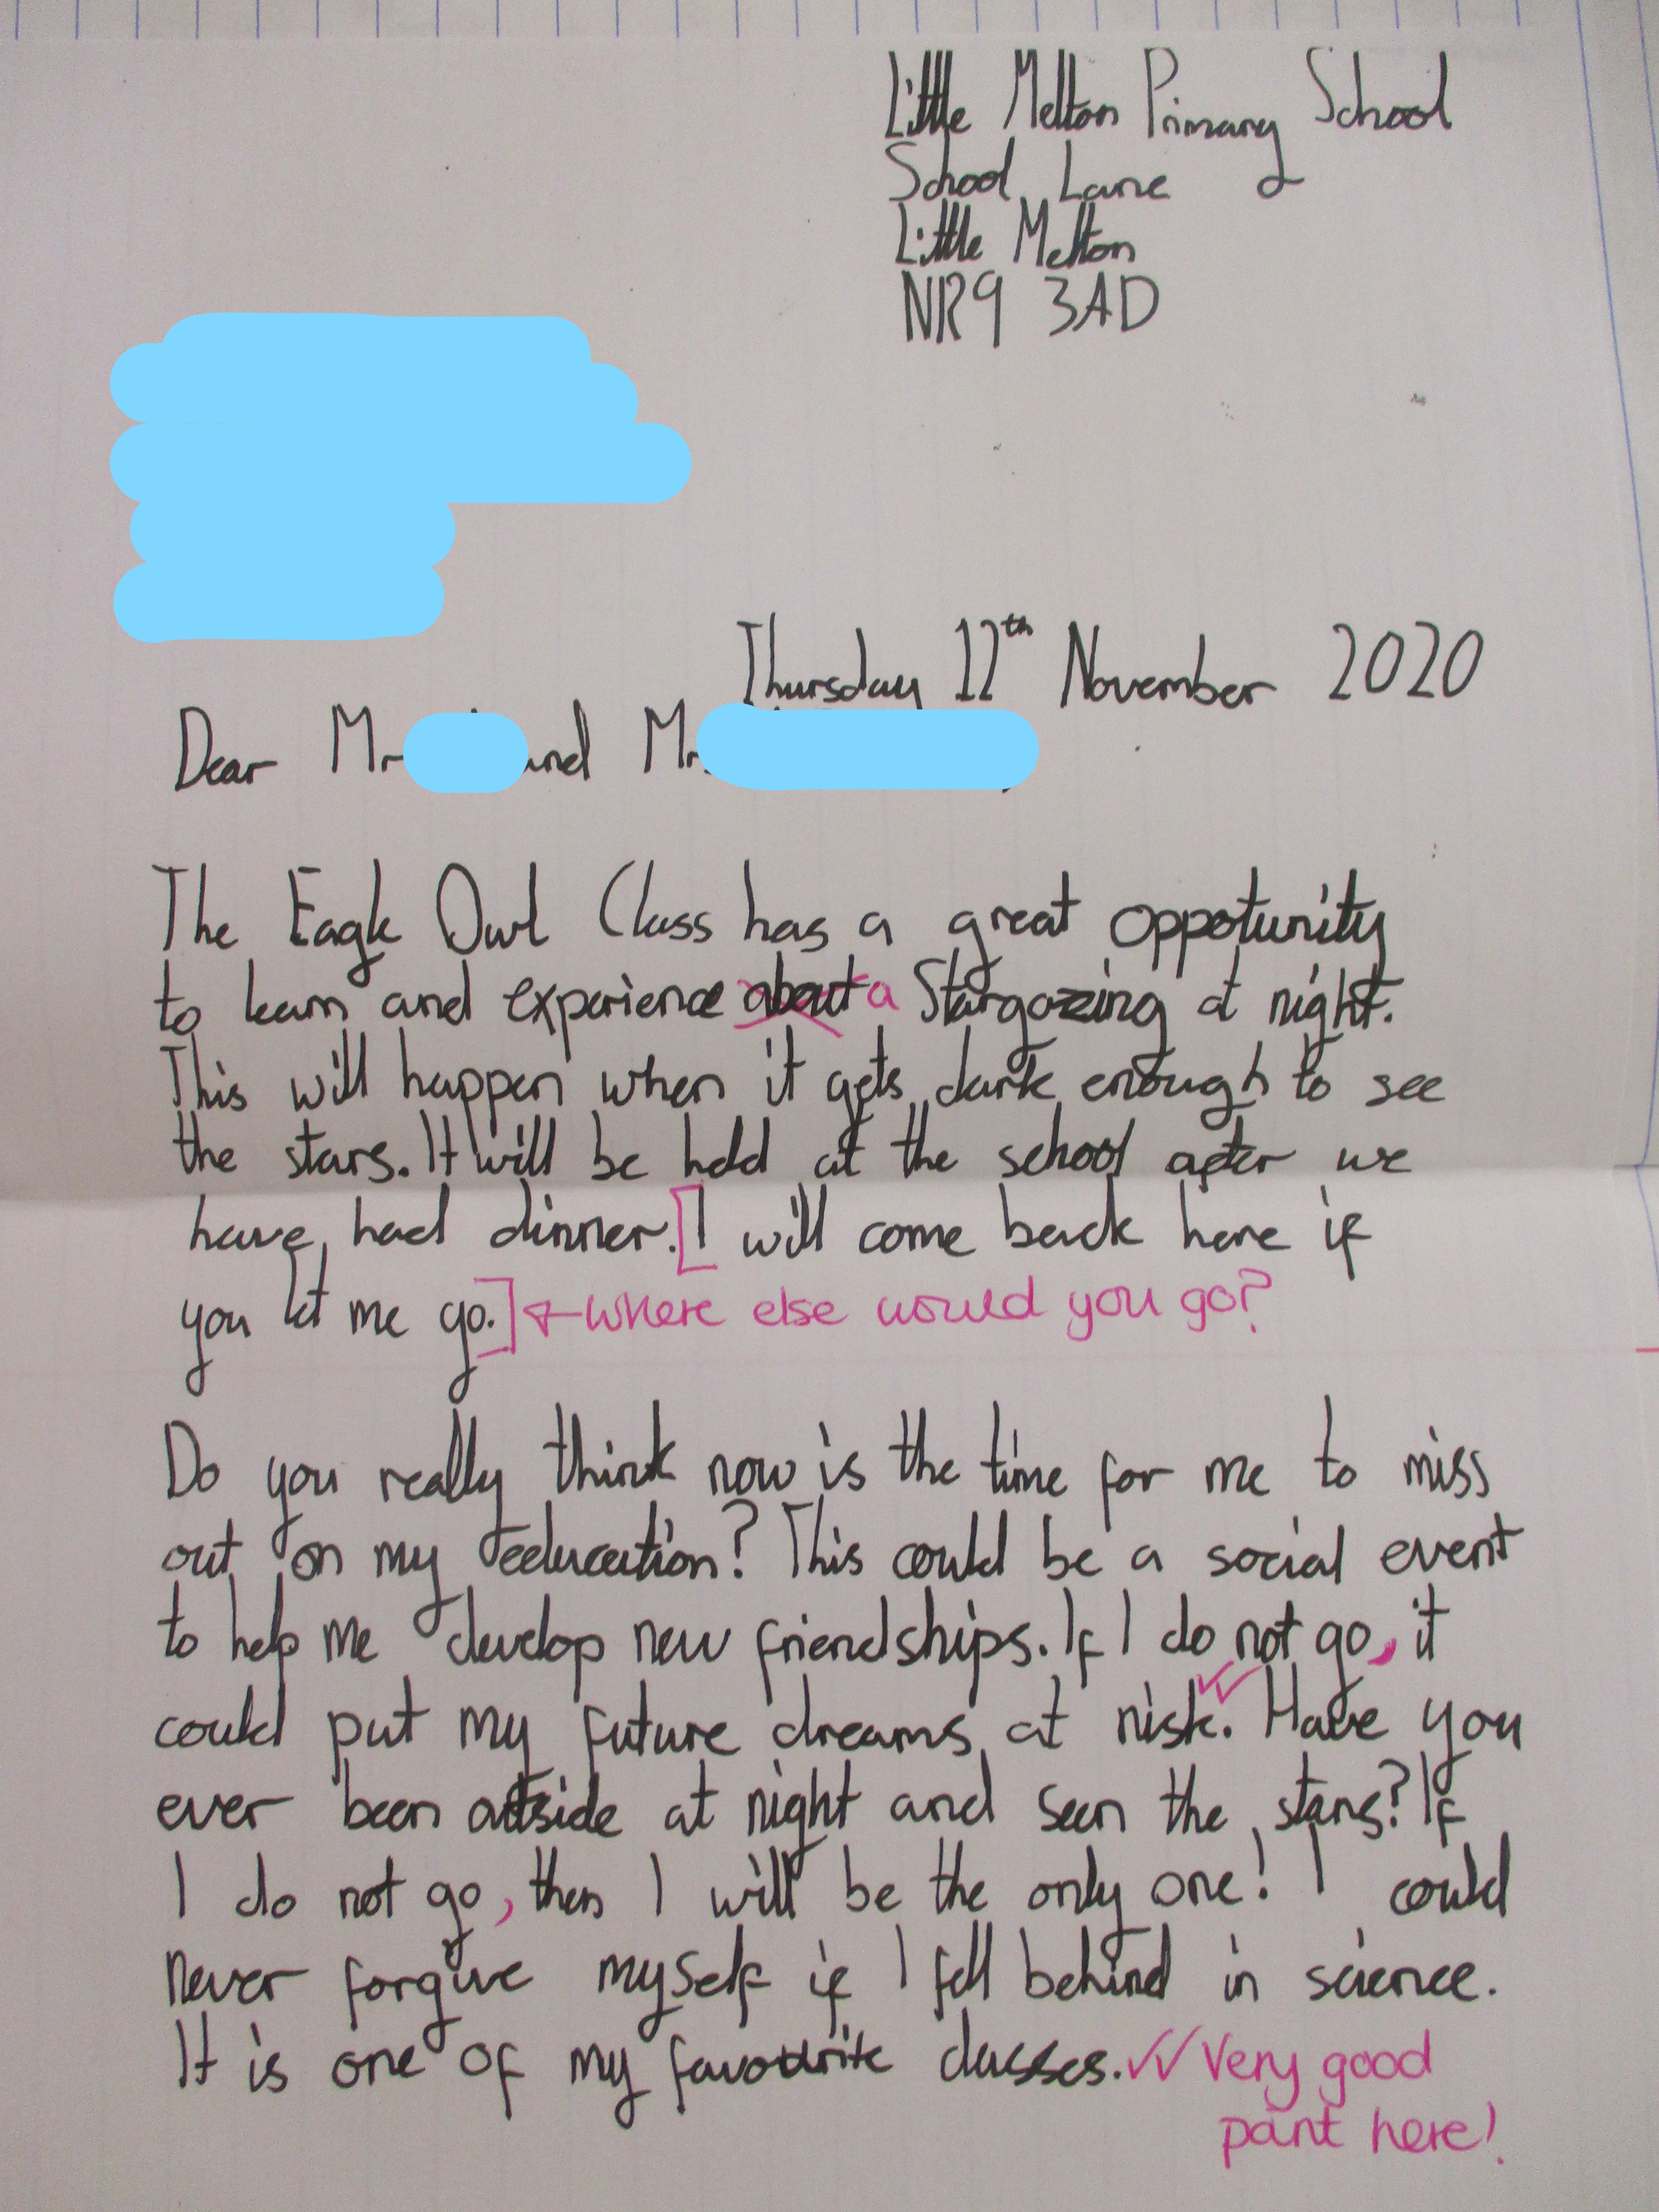 Little Melton Primary School
School Lane
Little Melton
NR9 3AD
Thursday 12th November 2020
Dear Mr and Mr
The Eagle Owl Class has a great oppotunity
to learn and experience about a Stargazing at night.
This will happen when it gets dark enough to see
the stars. It will be held at the school after we
have had dinner. [I will come back here if
you let me go.] ←where else would you go?
Do you really think now is the time for me to miss
out on my education? This could be a social event
to help me develop new friendships. If I do not go, it
could put my future dreams at risk. Have you
ever been outside at night and seen the stars? If
I do not go, then I will be the only one! I could
never forgive myself if I fell behind in science.
It is one of my favourite classes. ✓✓ Very good
point here!